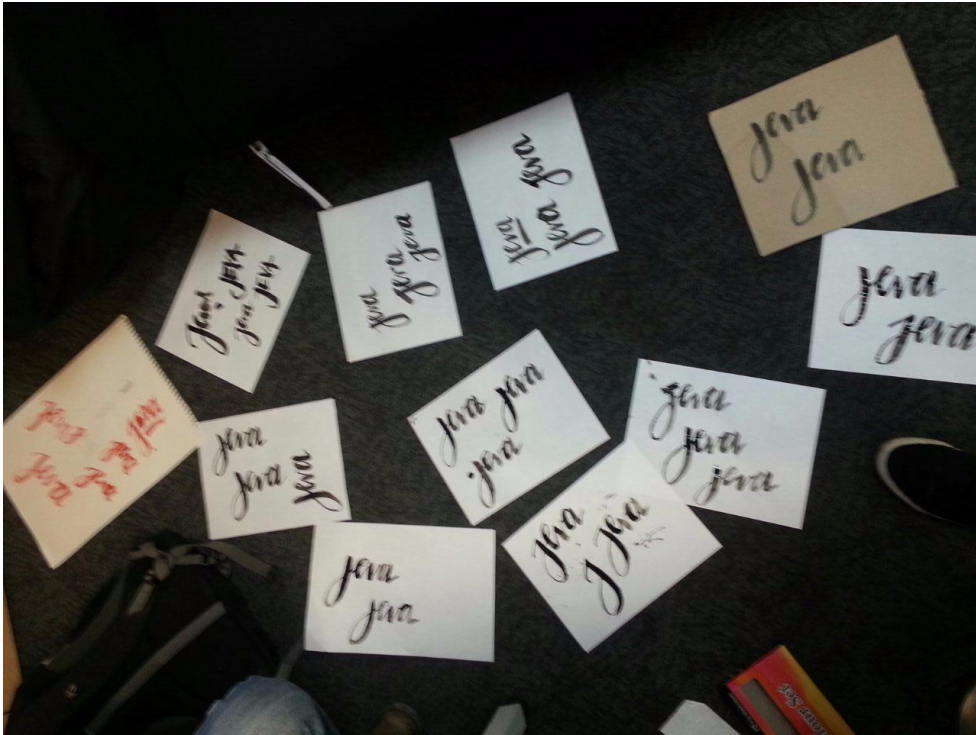 jeva
jeva
jeva
jeva jeva
jeva
jeva
jeva
Jeva JEVA
jeva JEVA
jeva
jeva
jeva
jeva
jeva
jeva
jeva
jeva
jeva
jeva
jeva
jeva jeva
jeva
jeva
jeva
jeva
jeva
jeva
j jeva
jeva
jeva